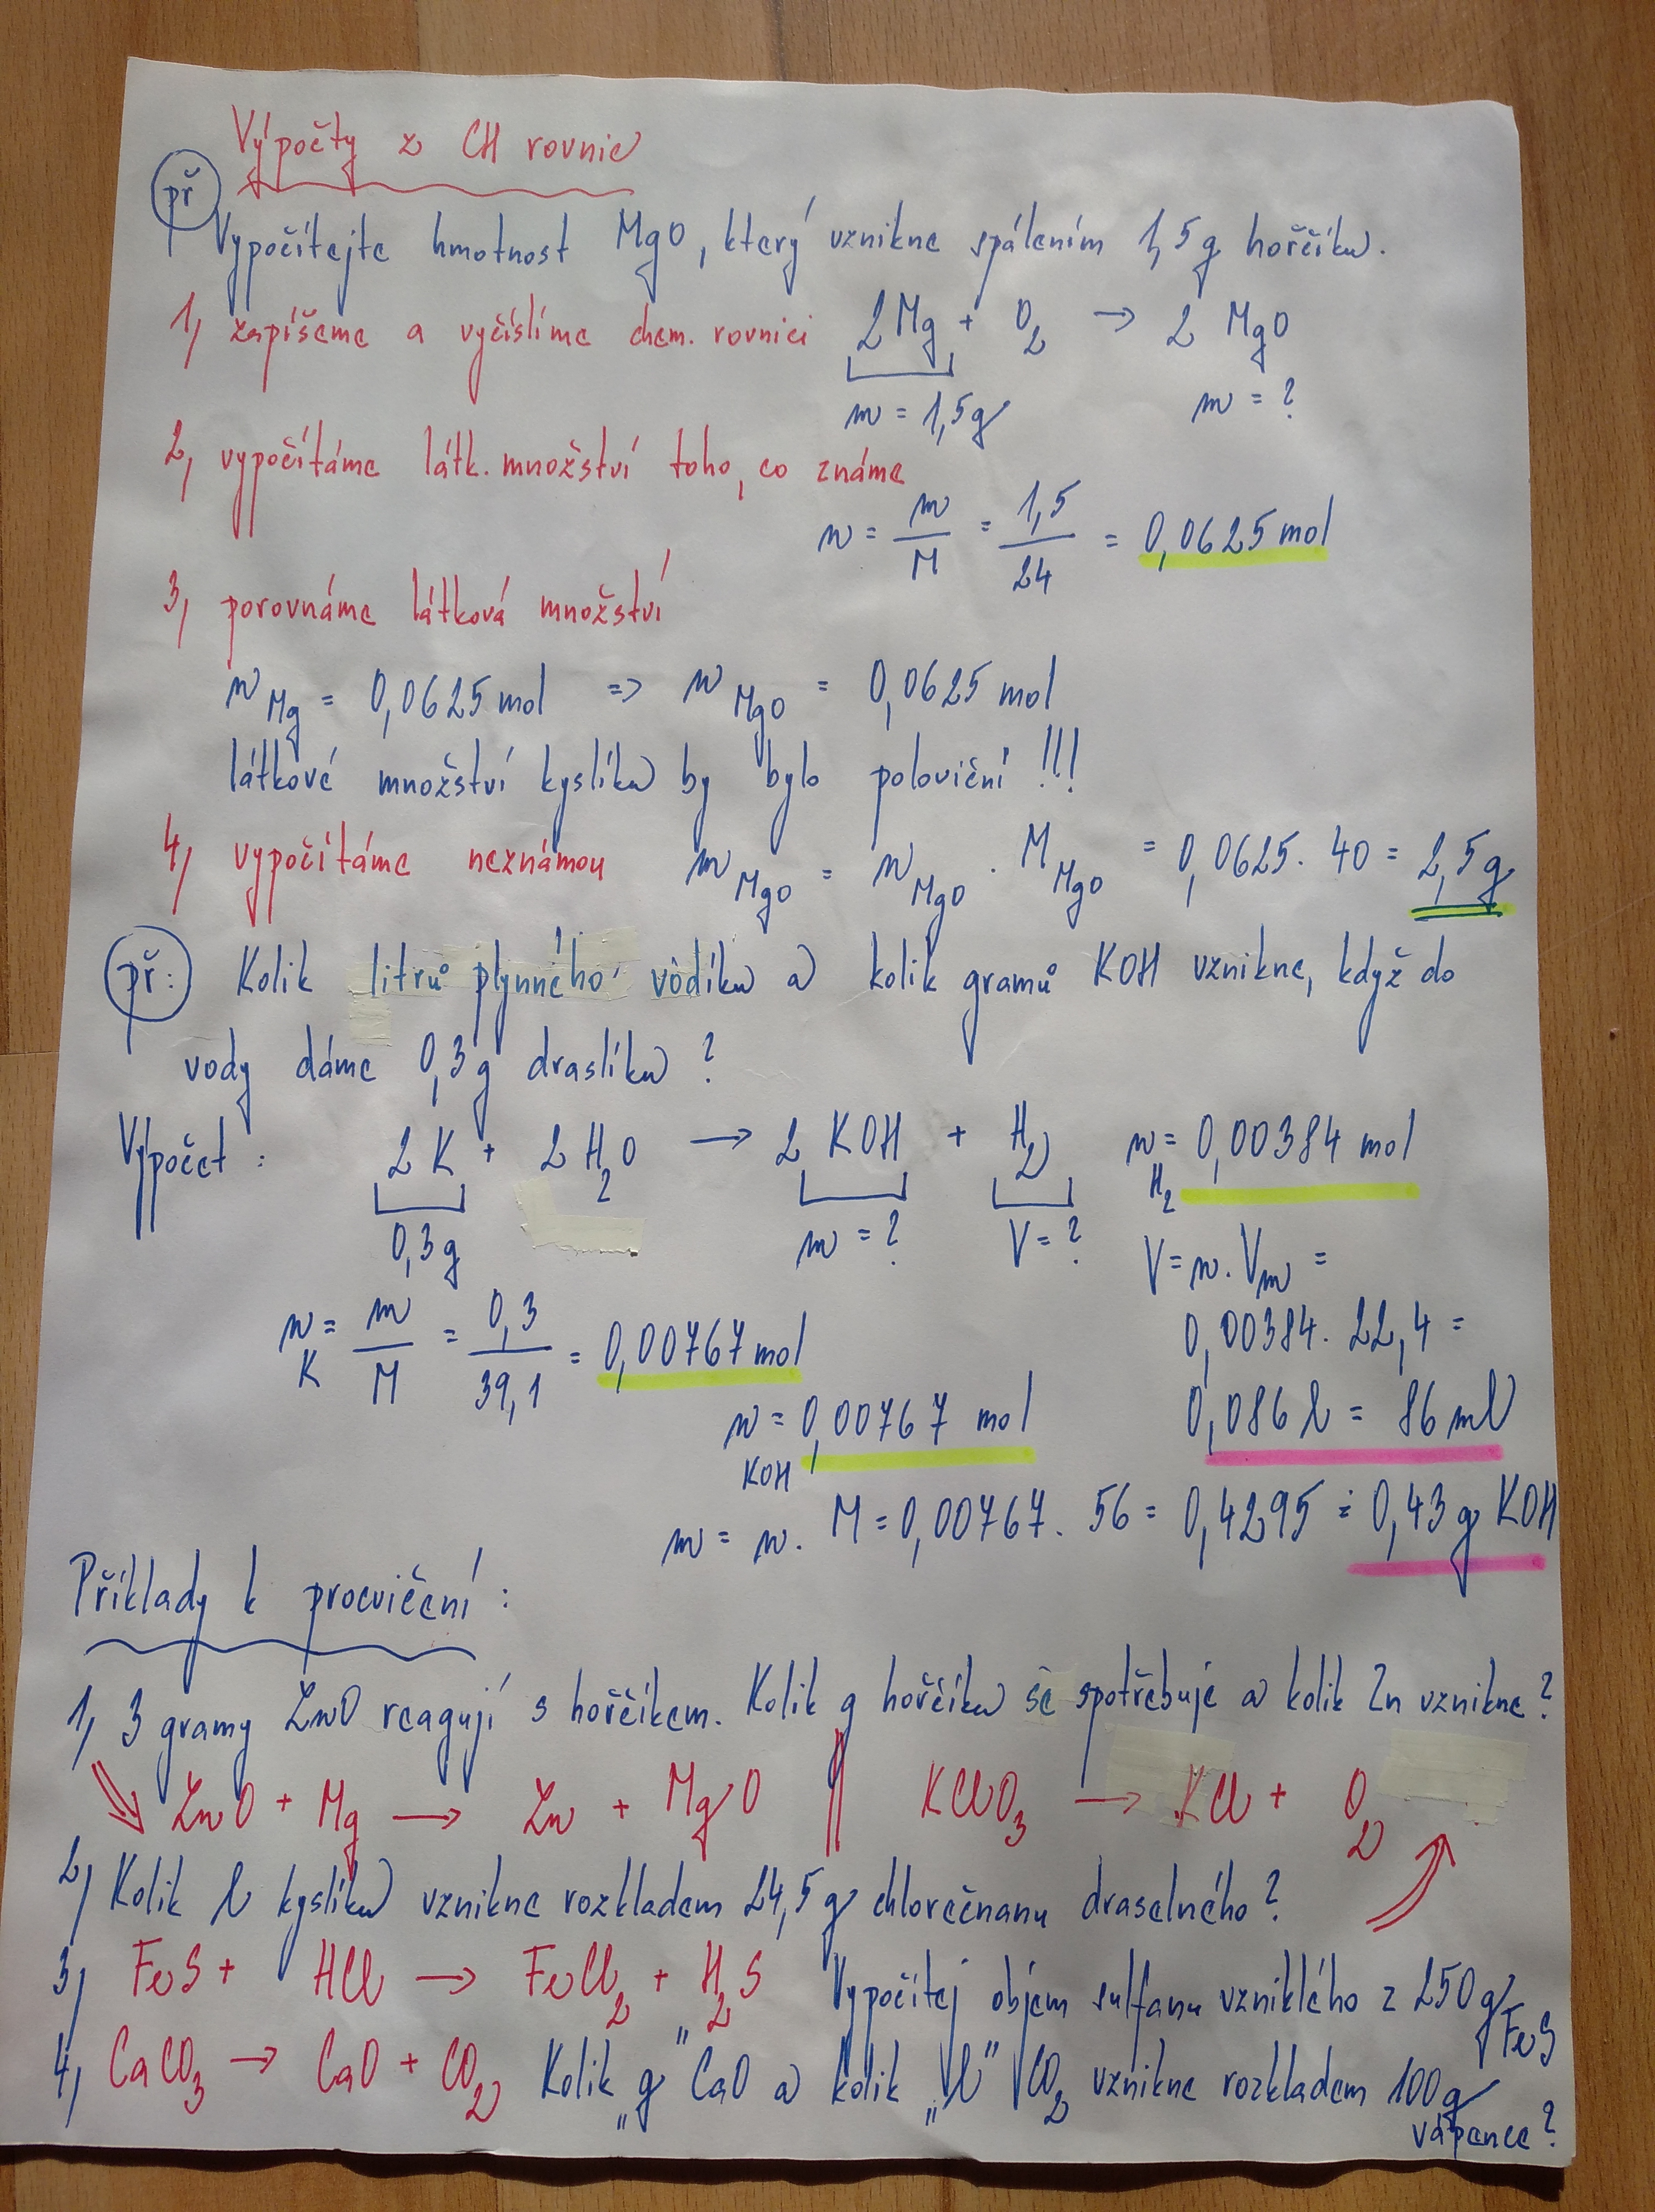 Výpočty z CH rovnic
př
Vypočítejte hmotnost MgO, který vznikne spálením 1,5g hořčíku.
1, zapíšeme a vyčíslíme chem. rovnici 2Mg + O2 → 2 MgO
m = 1,5g m = ?
2, vypočítáme látk. množství toho, co známe
n = m/M = 1,5/24 = 0,0625 mol
3, porovnáme látková množství
nMg = 0,0625 mol => nMgO = 0,0625 mol
látkové množství kyslíku by bylo poloviční !!!
4, vypočítáme neznámou mMgO = nMgO . MMgO = 0,0625 . 40 = 2,5g
př: Kolik litrů plynného vodíku a kolik gramů KOH vznikne, když do
vody dáme 0,3g draslíku ?
Výpočet : 2 K + 2 H2O → 2 KOH + H2 nH2 = 0,00384 mol
0,3g m = ? V = ? V = n . Vm =
nK = m/M = 0,3/39,1 = 0,00767 mol 0,00384 . 22,4 =
nKOH = 0,00767 mol 0,086 l = 86 ml
m = n . M = 0,00767 . 56 = 0,4295 ≐ 0,43 g KOH
Příklady k procvičení :
1, 3 gramy ZnO reagují s hořčíkem. Kolik g hořčíku se spotřebuje a kolik Zn vznikne ?
ZnO + Mg → Zn + MgO || KClO3 → KCl + O2
2, Kolik l kyslíku vznikne rozkladem 24,5 g chlorečnanu draselného ?
3, FeS + HCl → FeCl2 + H2S Vypočítej objem sulfanu vzniklého z 250g FeS
4, CaCO3 → CaO + CO2 Kolik „g" CaO a kolik „l" CO2 vznikne rozkladem 100g
vápence ?